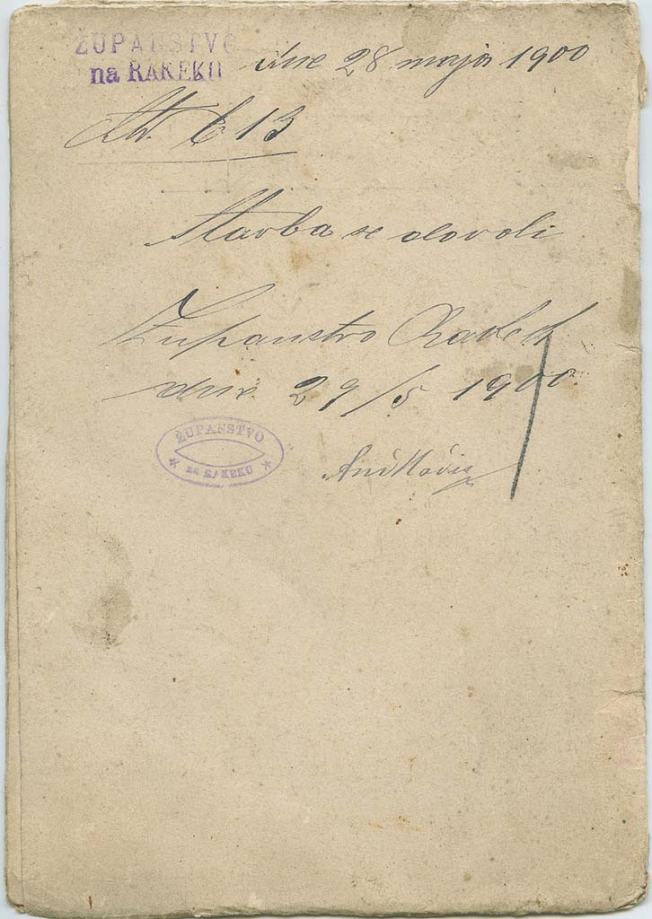 ŽUPANSTVO
na RAKEKU dne 28 maja 1900
Štv. 613
Stavba se dovoli
Županstvo Rakek
dne 29/5 1900
ŽUPANSTVO
na RAKEKU